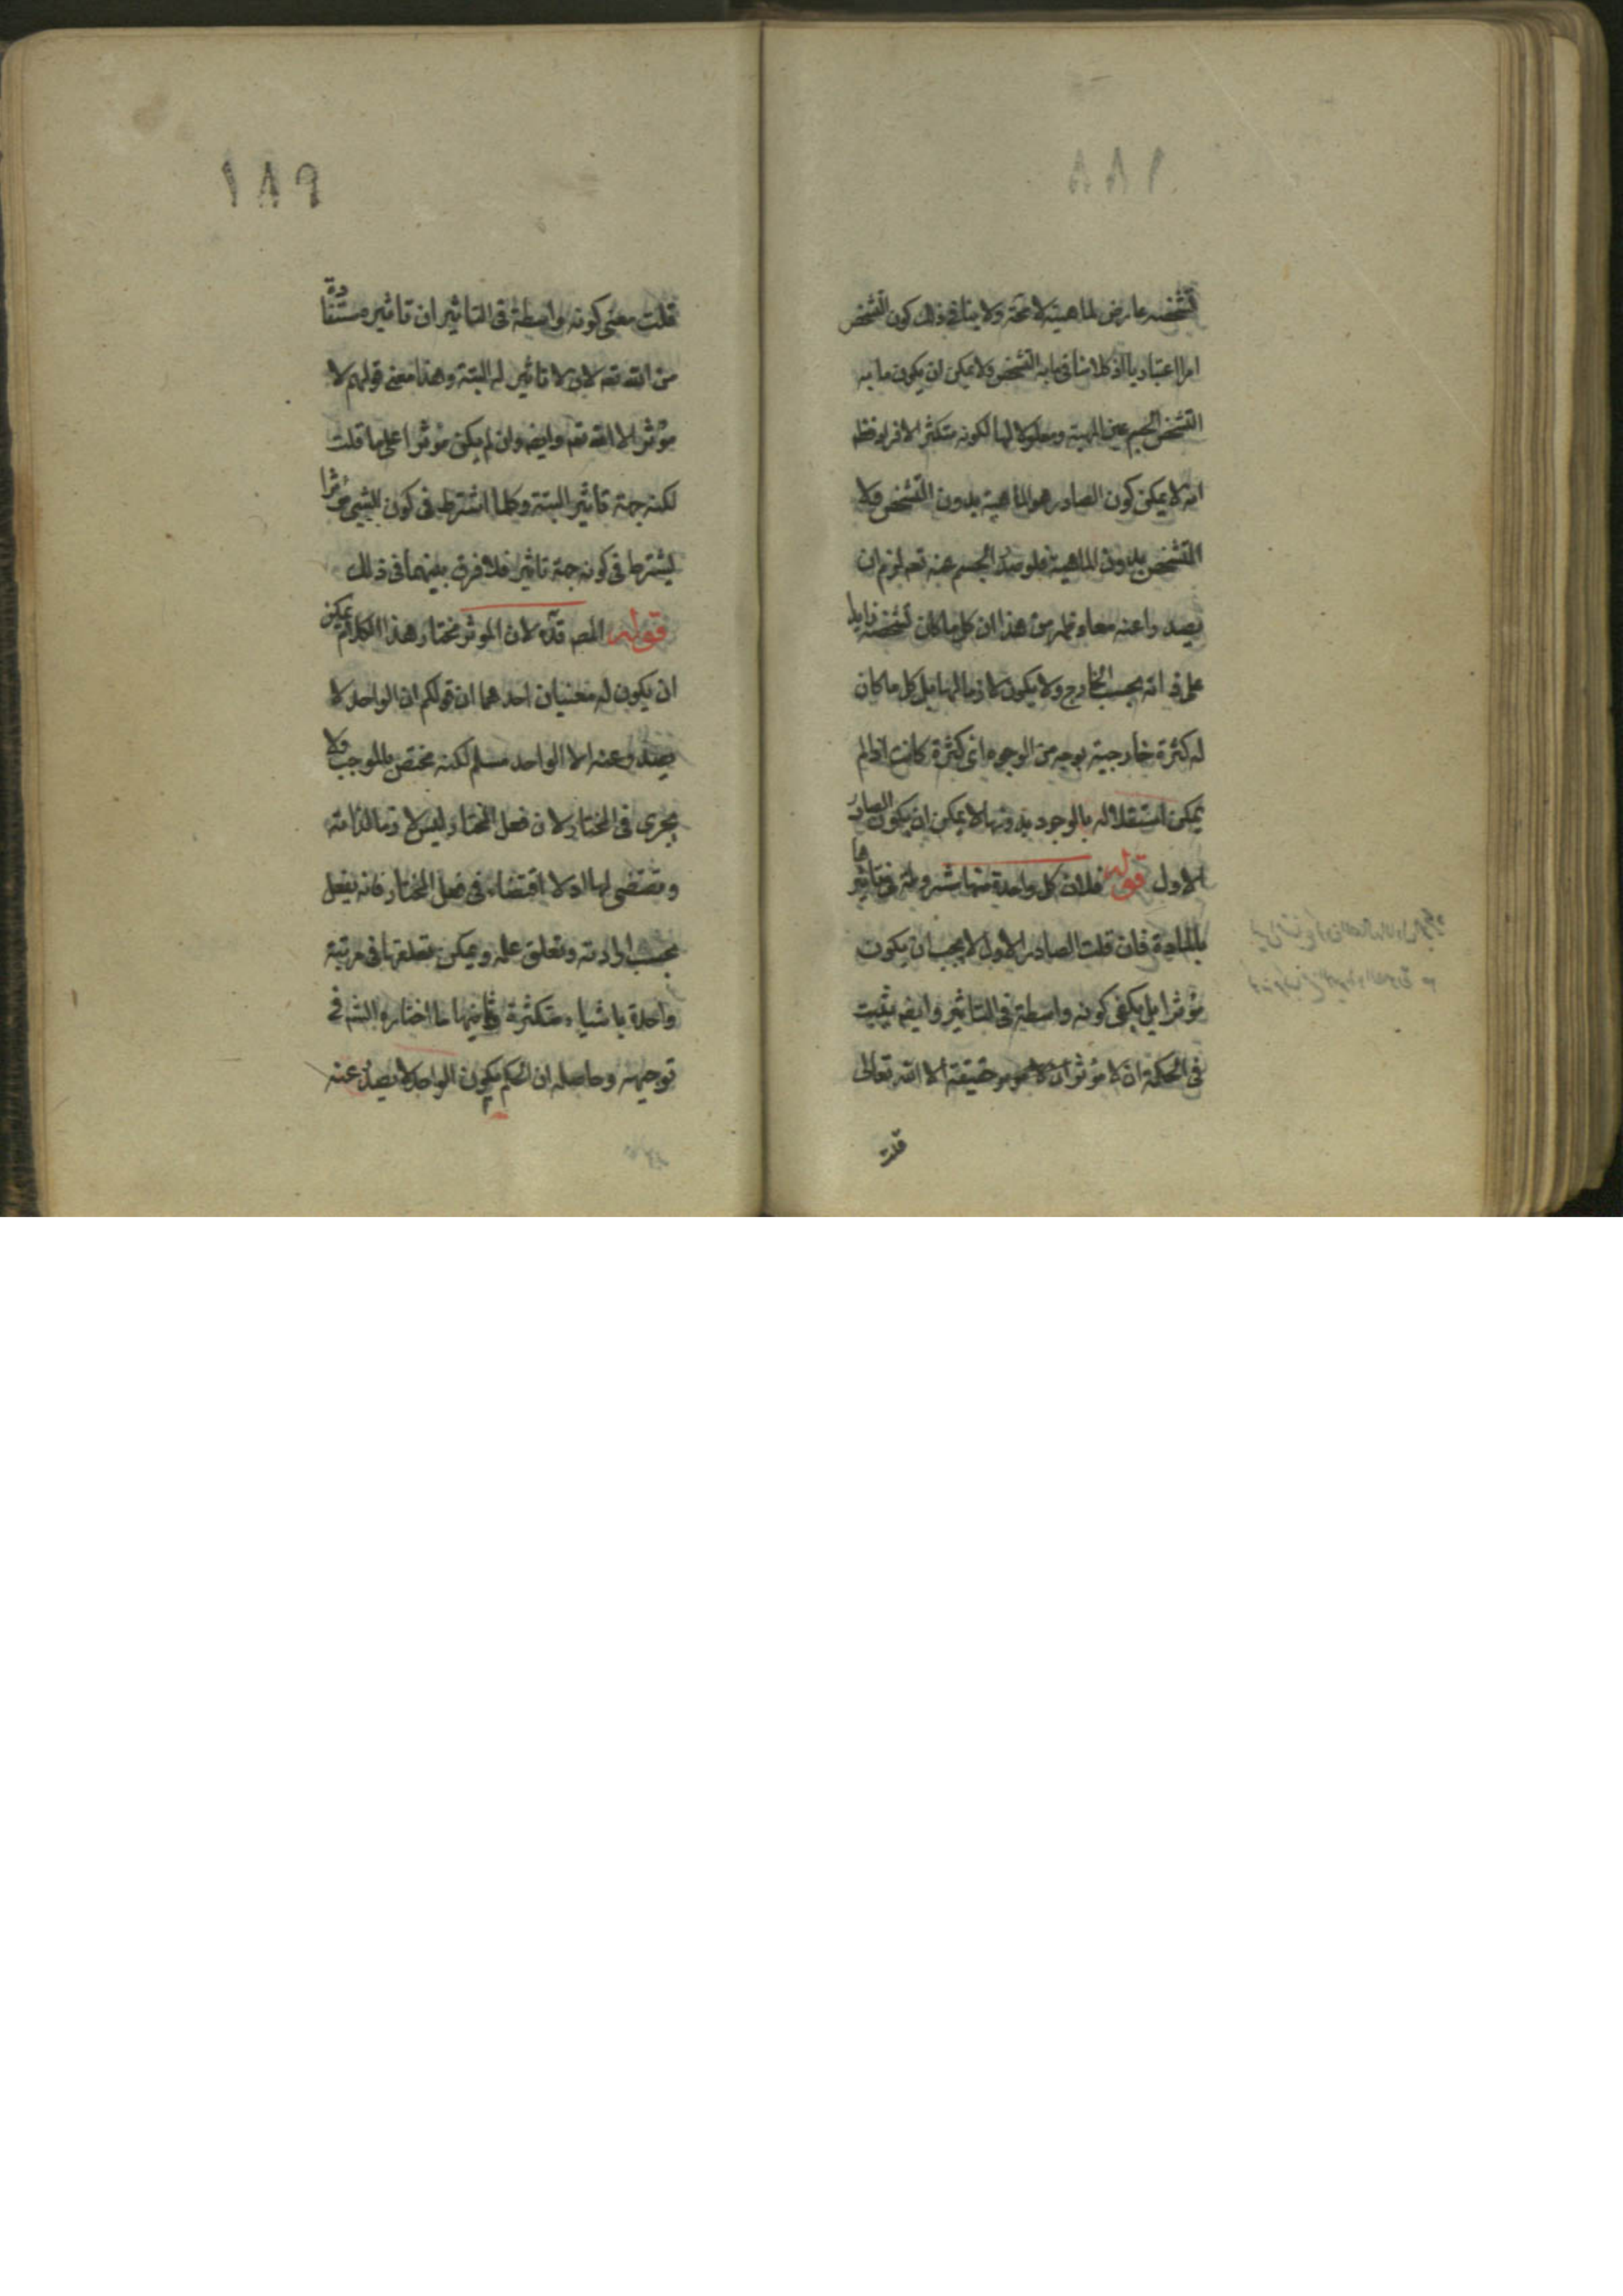 ١٨٨
تشخصه عارض للماهية لا محة ولا ينافى ذلك كون التشخص
امرا اعتباريا اذ كلامنا فى ما به التشخص ولا يمكن ان يكون ما به
التشخص الجسم عين المهية ومعلولا لها لكونه متكثر الافراد فظهر
انه لا يمكن كون الصادر هو الماهية بدون التشخص ولا
التشخص بدون الماهية فلو صدر الجسم عنه تعه لزم ان
يصدرا عنه معا وظهر من هذا ان كل ما كان تشخصه زايدا
على ذاته بحسب الخارج ولا يكون لازما لها بل كل ما كان
له كثرة خارجية بوجه من الوجوه اى كثرة كانت اذا لم
يمكن استقلاله بالوجود بدونها لا يمكن ان يكون الصادر
الاول قوله فلان كل واحدة منها مشروطة فى تاثيرها
بالمادة فان قلت الصادر الاول لا يجب ان يكون
مؤثرا بل يكفى كونه واسطة فى التاثير وايضه يثبت
فى الحكمة ان لا مؤثر فى الوجود حقيقة الا الله تعالى
قلت
١٨٩
قلت معنى كونه واسطة فى التاثير ان تاثيره مستفاد
من الله تعه لا ان لا تاثير له البتة وهذا معنى قولهم لا
مؤثر الا الله تعه وايضه وان لم يكن مؤثرا على ما قلت
لكنه جهة تاثير البتة وكلما اشترط فى كون الشيئ مؤثرا
يشترط فى كونه جهة تاثير فلا فرق بينهما فى ذلك
قوله المصه قده لان الموثر مختار هذا الكلام يمكن
ان يكون له معنيان احدهما ان قولكم ان الواحد لا
يصدر عنه الا الواحد مسلم لكنه مختص بالموجب ولا
يجرى فى المختار لان فعل المختار ليس لازما لذاته
ومقتضى لها اذ لا اقتضاء فى فعل المختار فانه يفعل
بحسب ارادته وتعلق علمه ويمكن تعلقها فى مرتبة
واحدة باشياء متكثرة وثانيهما ما اختاره الشه فى
توجيهه وحاصله ان الحكم بكون الواحد لا يصدر عنه